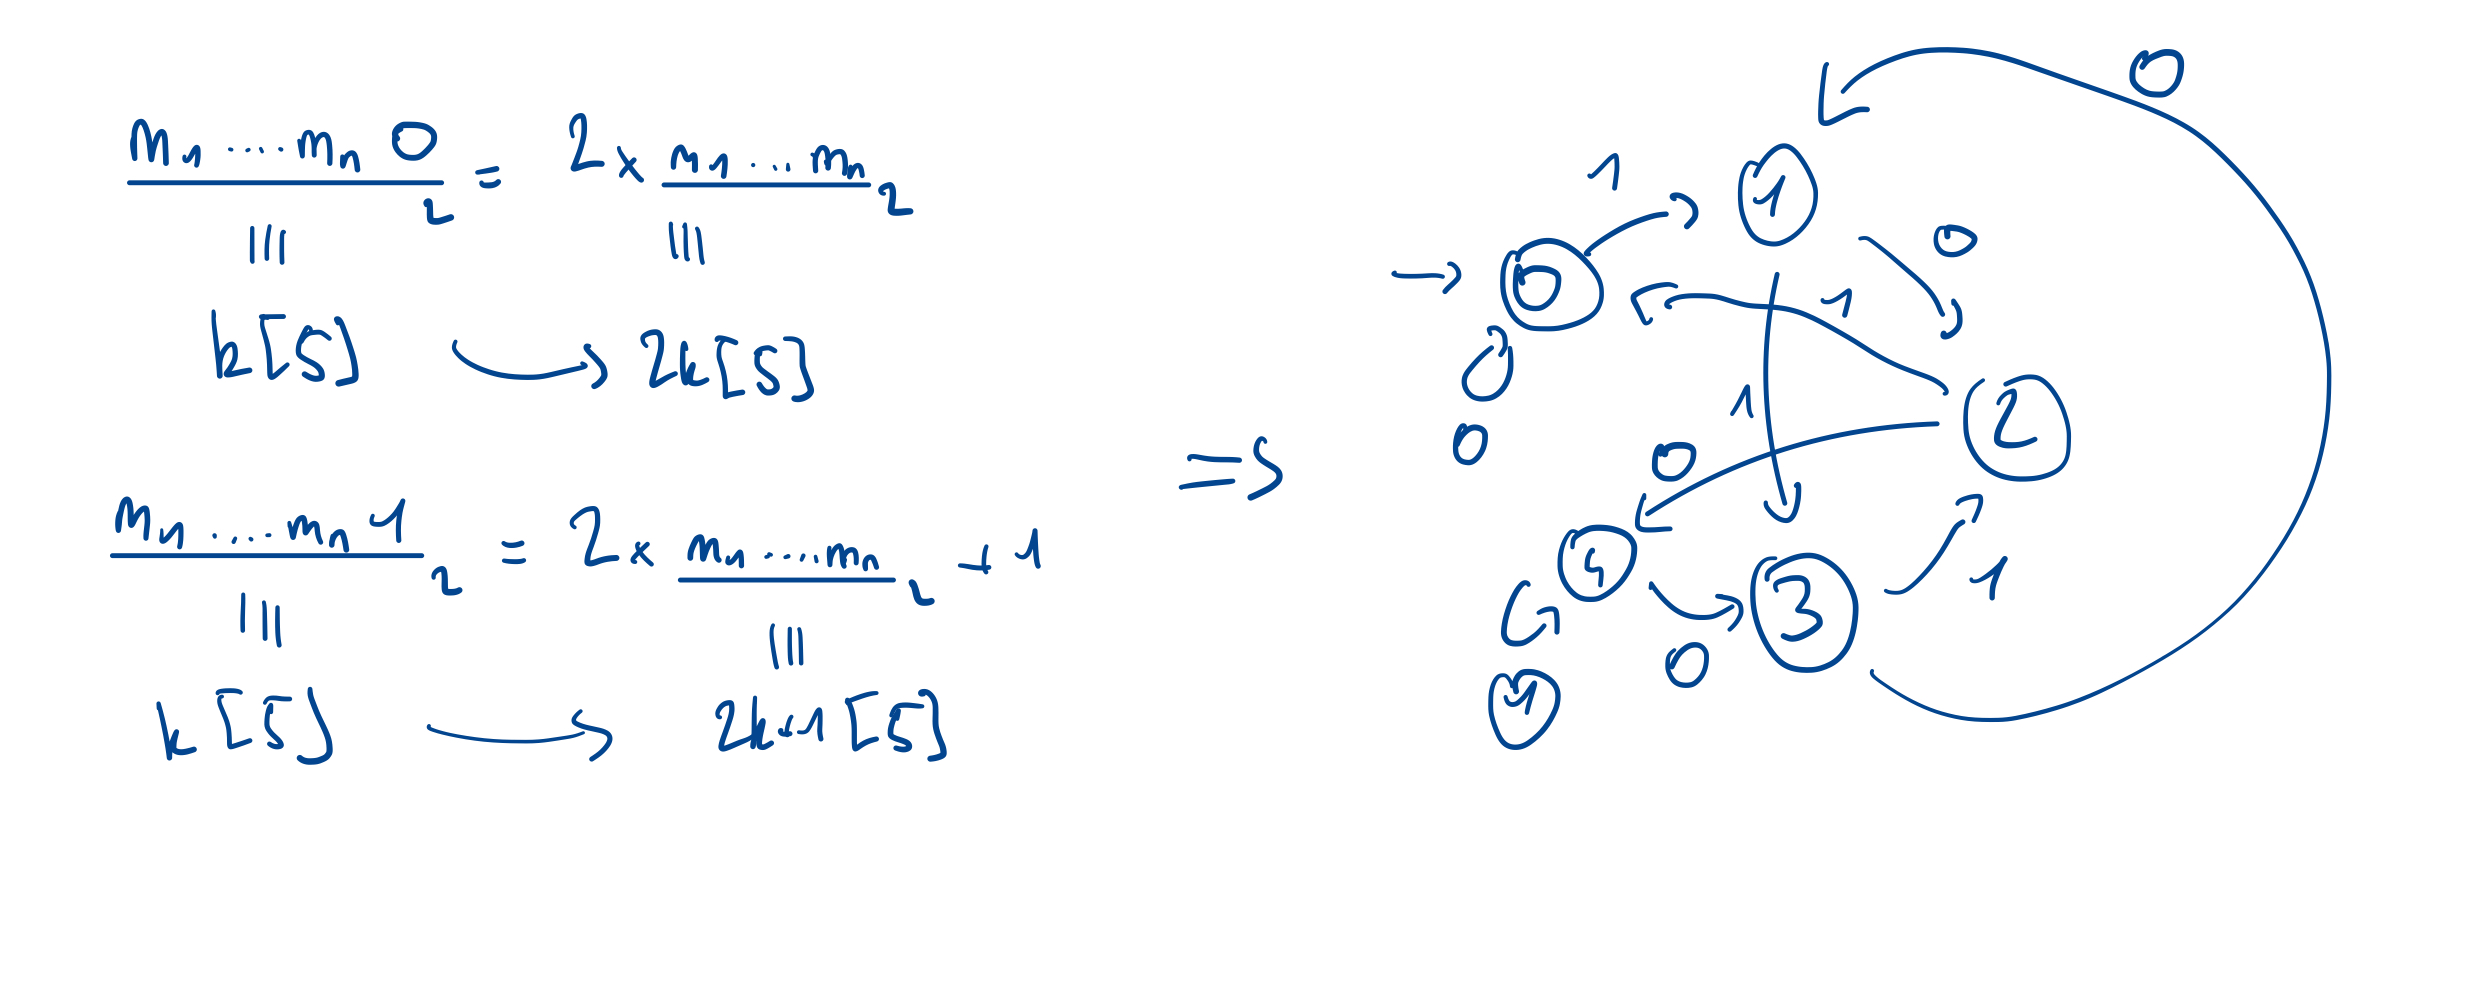 m₁ .... mₙ 0 ₂ = 2 × m₁ ... mₙ ₂
||| |||
k[5] → 2k[5]
m₁ .... mₙ 1 ₂ = 2 × m₁ .... mₙ ₂ + 1
||| |||
k[5] → 2k+1[5]
=>
0
1
1
→ 0
0
1
0
1
2
0
0
4
3
1
0
1